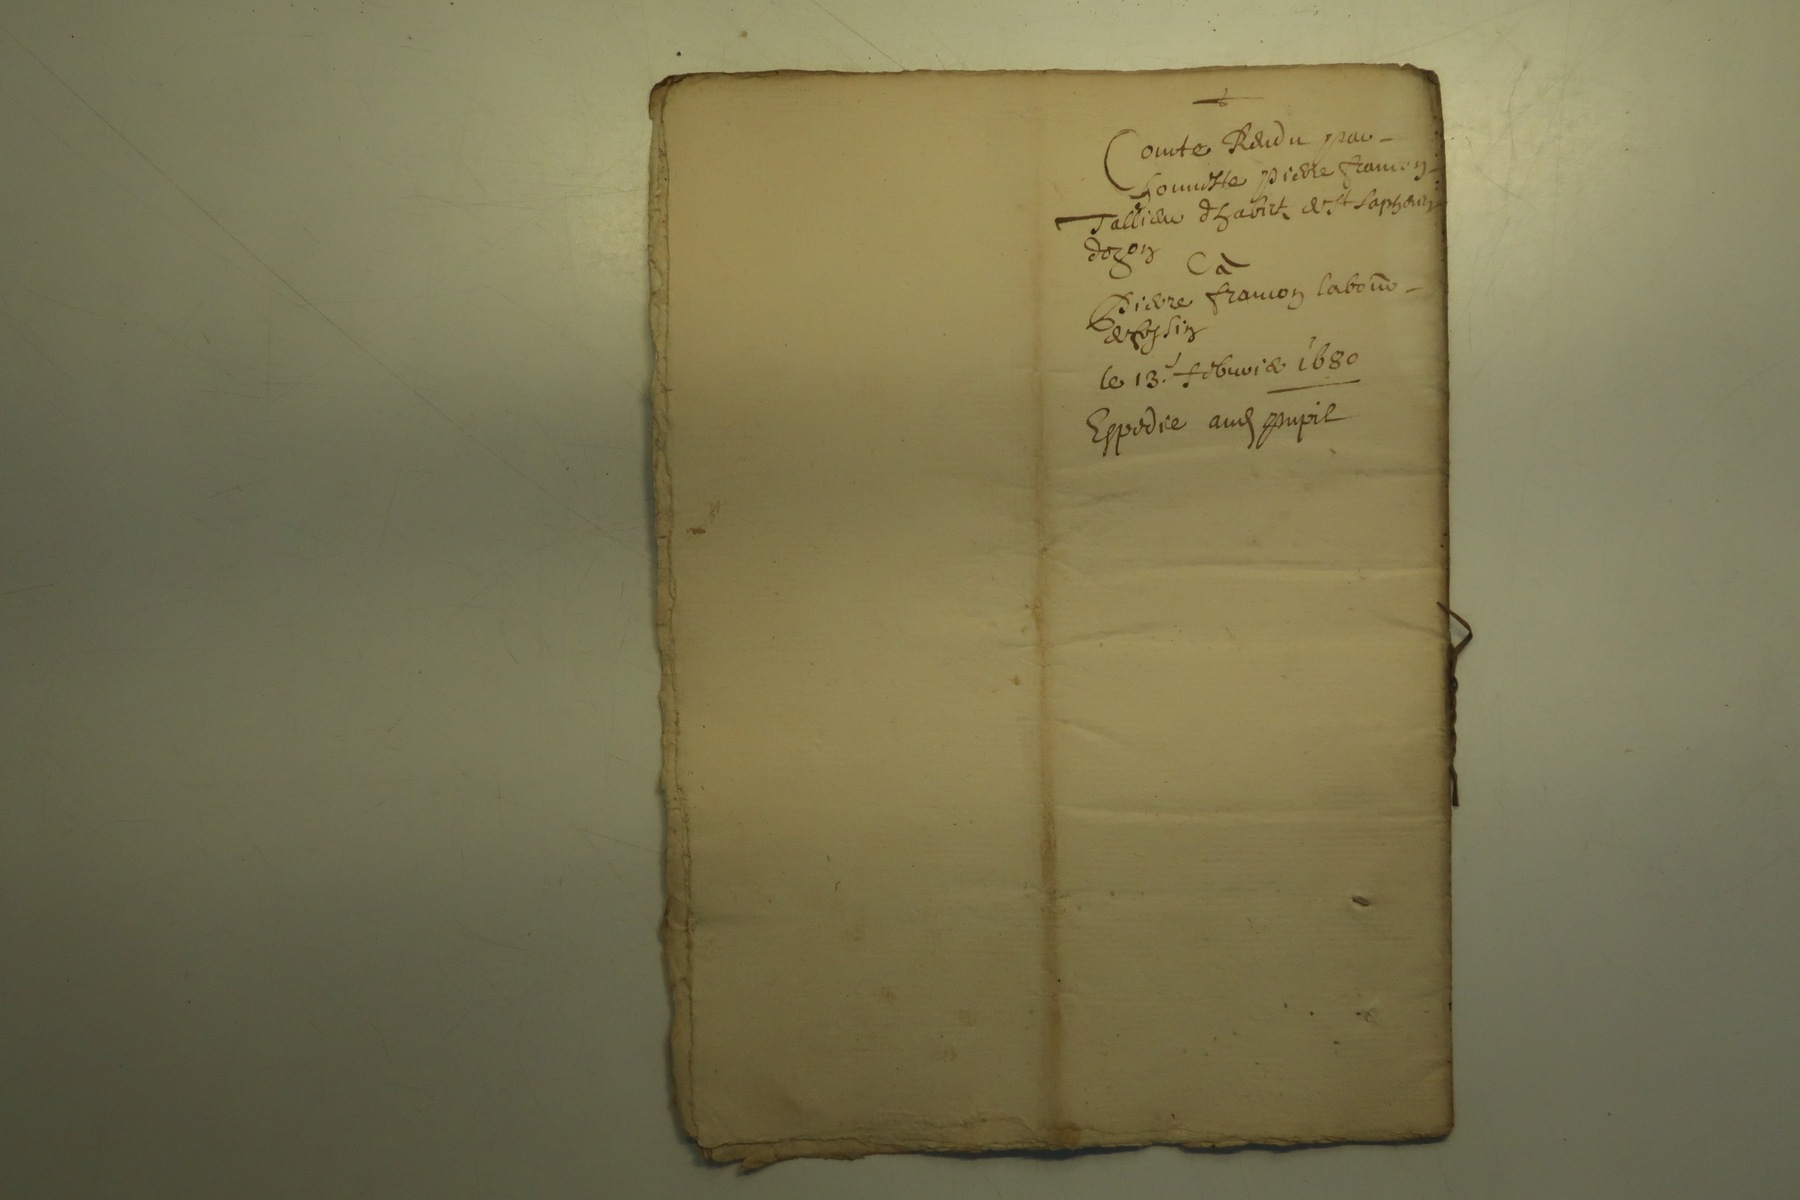 Comte Rendu par
honneste pierre framon
Tallieu dhabit de st saphorin
dozon
a
Pierre framon labour
de
le 13. febvrie 1680
Expedie aud pupil